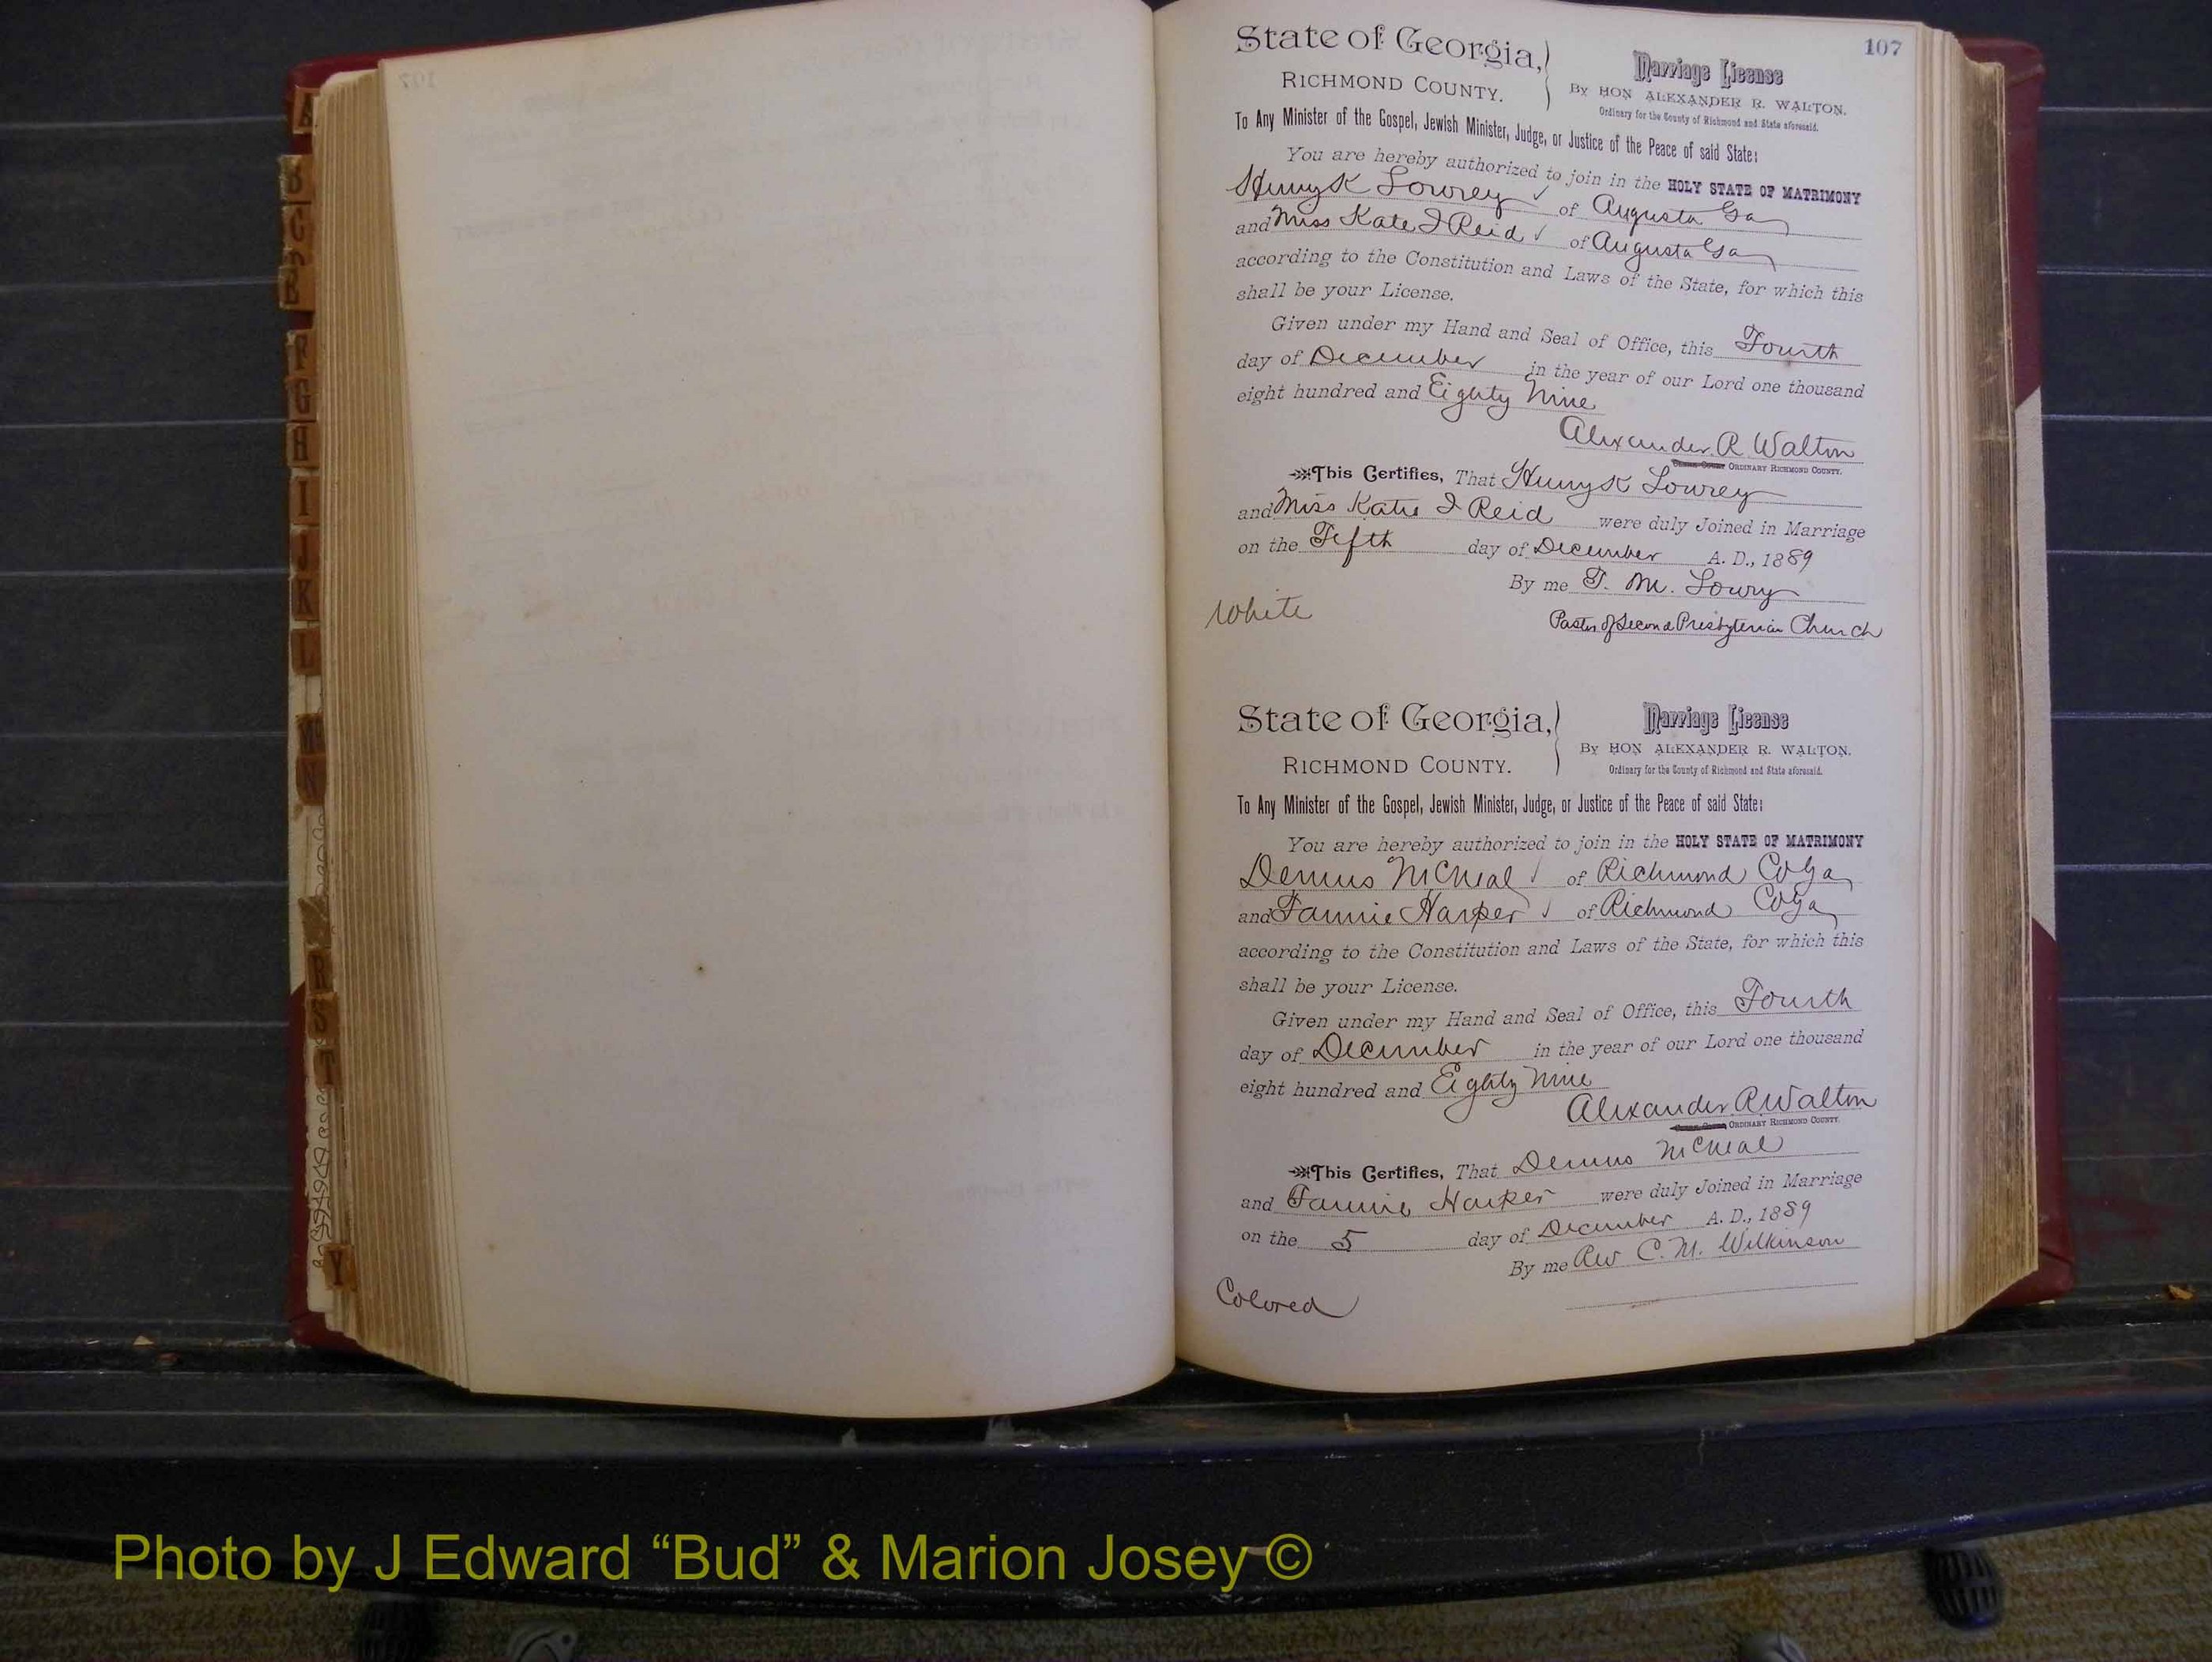 107
State of Georgia,
RICHMOND COUNTY.
Marriage License
BY HON ALEXANDER R. WALTON.
Ordinary for the County of Richmond and State aforesaid.
To Any Minister of the Gospel, Jewish Minister, Judge, or Justice of the Peace of said State:
You are hereby authorized to join in the HOLY STATE OF MATRIMONY
Henry K Lowrey of Augusta Ga
and Miss Kate I Reid of Augusta Ga
according to the Constitution and Laws of the State, for which this
shall be your License.
Given under my Hand and Seal of Office, this Fourth
day of December in the year of our Lord one thousand
eight hundred and Eighty Nine
Alexander R Walton
ORDINARY RICHMOND COUNTY.
This Certifies, That Henry K Lowrey
and Miss Katie I Reid were duly Joined in Marriage
on the Fifth day of December A. D., 1889
By me T. M. Lowry
Pastor of Second Presbyterian Church
White
State of Georgia,
RICHMOND COUNTY.
Marriage License
BY HON ALEXANDER R. WALTON.
Ordinary for the County of Richmond and State aforesaid.
To Any Minister of the Gospel, Jewish Minister, Judge, or Justice of the Peace of said State:
You are hereby authorized to join in the HOLY STATE OF MATRIMONY
Dennis McNeal of Richmond Co Ga
and Fannie Harper of Richmond Co Ga
according to the Constitution and Laws of the State, for which this
shall be your License.
Given under my Hand and Seal of Office, this Fourth
day of December in the year of our Lord one thousand
eight hundred and Eighty Nine
Alexander R Walton
ORDINARY RICHMOND COUNTY.
This Certifies, That Dennis McNeal
and Fannie Harper were duly Joined in Marriage
on the 5 day of December A. D., 1889
By me Rev C. M. Wilkinson
Colored
B
G
H
I
J
K
L
N
R
S
T
Y
Photo by J Edward “Bud” & Marion Josey ©